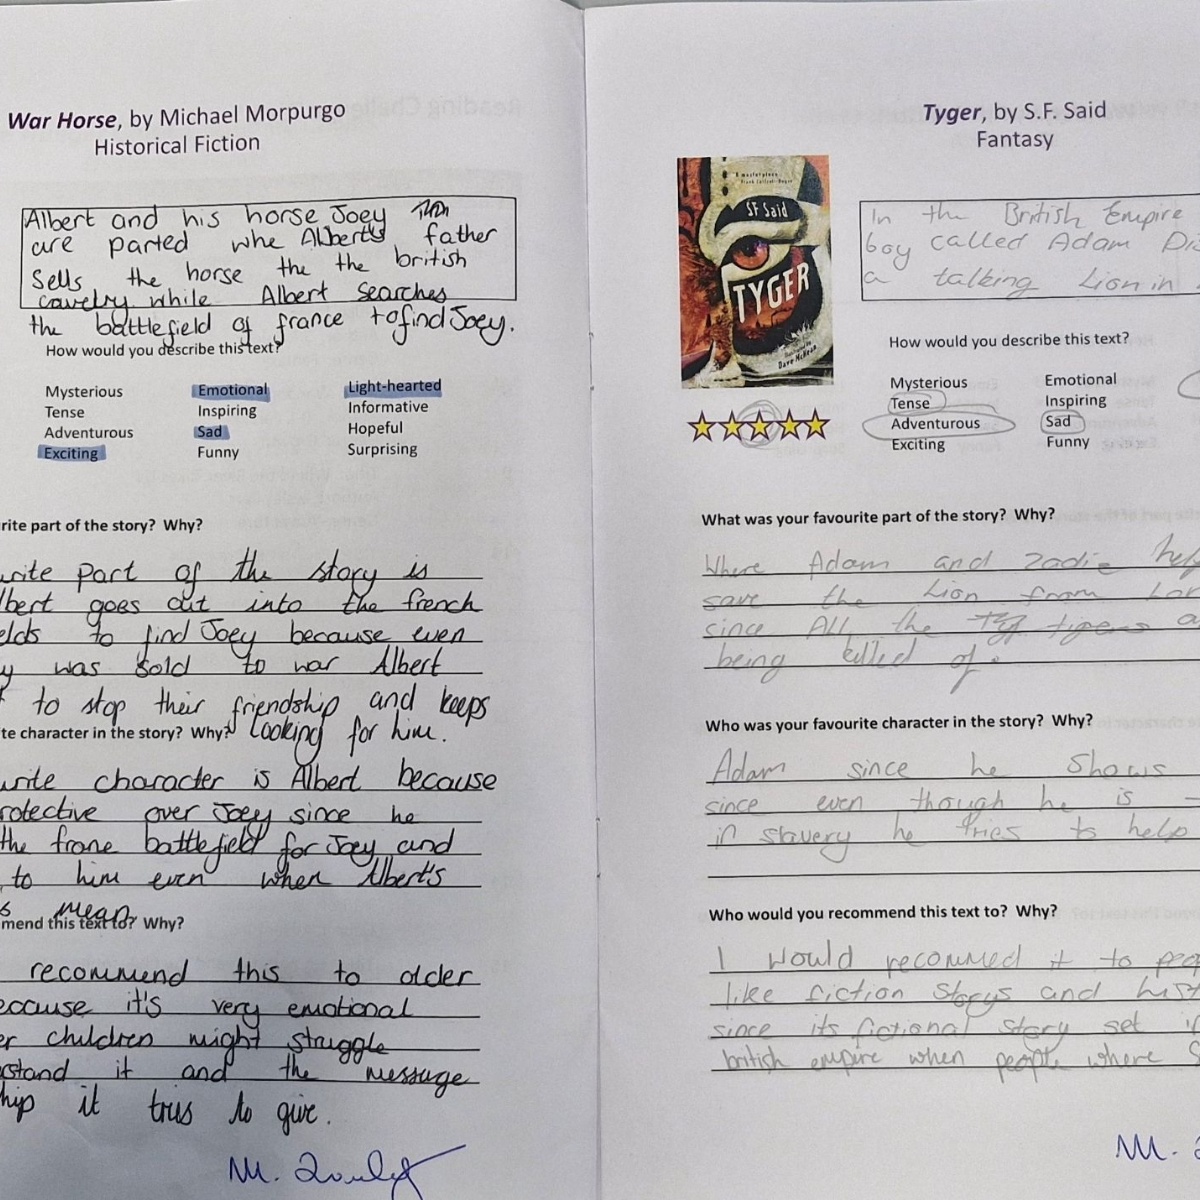 War Horse, by Michael Morpurgo
Historical Fiction
Albert and his horse Joey
are parted whe Albert's father
Sells the horse the the british
cavelry while Albert searches
the battlefield of france to find Joey.
How would you describe this text?
Mysterious Emotional Light-hearted
Tense Inspiring Informative
Adventurous Sad Hopeful
Exciting Funny Surprising
rite part of the story? Why?
urite part of the story is
lbert goes out into the french
elds to find Joey because even
y was sold to war Albert
to stop their friendship and keeps
looking for him.
te character in the story? Why?
urite character is Albert because
rotective over Joey since he
the frane battlefield for Joey and
to him even when Albert's
s mean.
mend this text to? Why?
recommend this to older
ecause it's very emotional
er children might struggle
rstand it and the message
hip it trus to give.
M.
Tyger, by S.F. Said
Fantasy
SF Said
TYGER
Illustrated by
Dave McKean
In the British Empire
boy called Adam
a talking Lion in
How would you describe this text?
Mysterious Emotional
Tense Inspiring
Adventurous Sad
Exciting Funny
What was your favourite part of the story? Why?
Where Adam and Zadie help
save the Lion from
since All the Ty tigers a
being killed of.
Who was your favourite character in the story? Why?
Adam since he Shows
since even though he is
in slavery he tries to help
Who would you recommend this text to? Why?
I would recommed it to peo
like fiction storys and hist
since its fictional story set i
british empire when people where S
M.